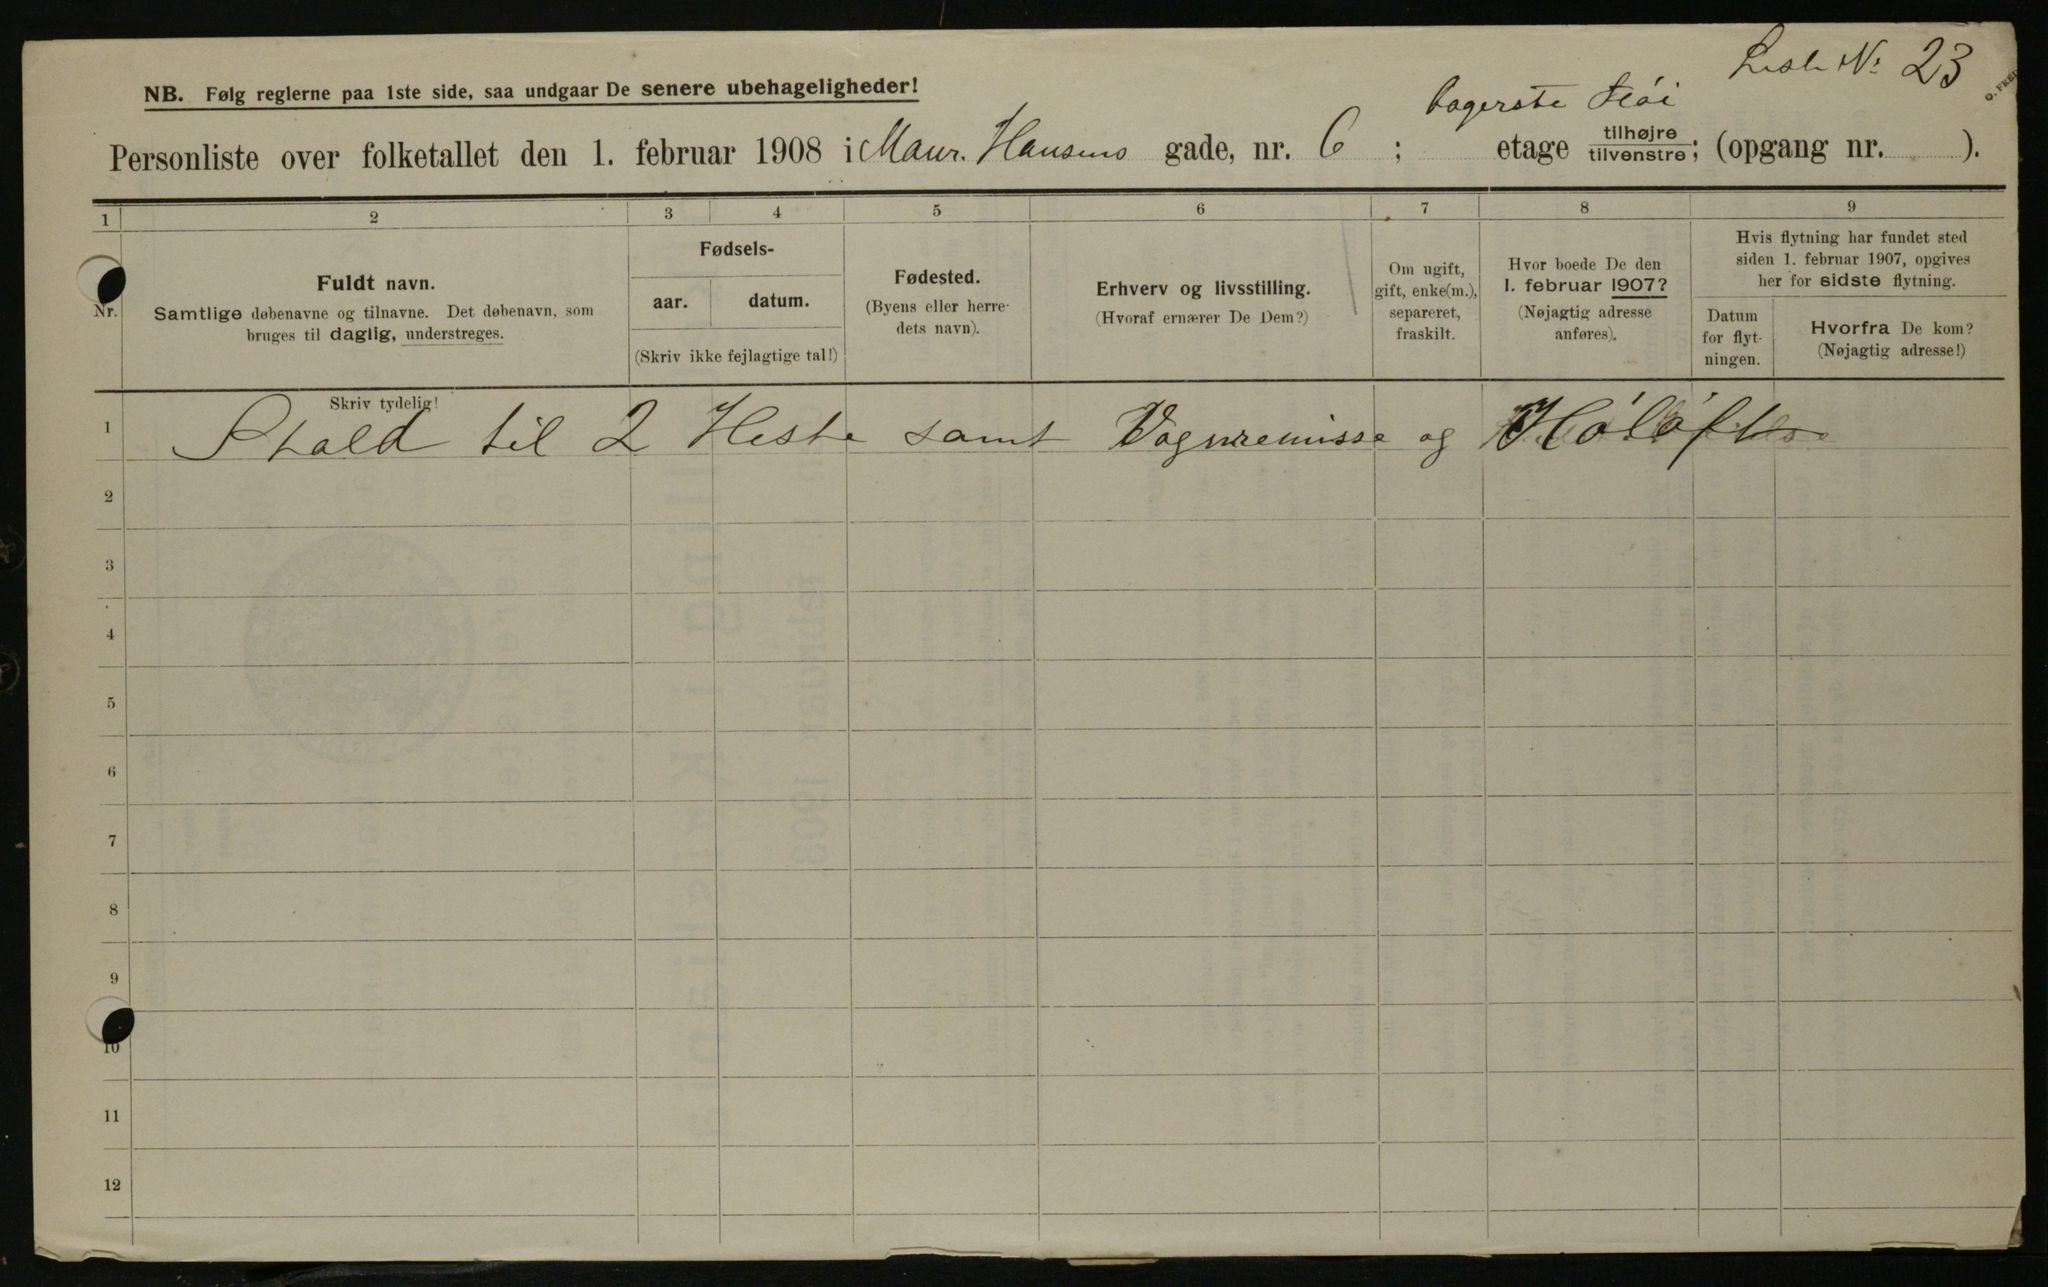 Liste No 23
NB. Følg reglerne paa 1ste side, saa undgaar De senere ubehageligheder!
bagerste Høi
Personliste over folketallet den 1. februar 1908 i Maur. Hansens gade, nr. 6 ; etage tilhøjre/tilvenstre; (opgang nr. ).
1 2 3 4 5 6 7 8 9
Nr.
Fuldt navn.
Samtlige døbenavne og tilnavne. Det døbenavn, som
bruges til daglig, understreges.
Skriv tydelig!
Fødsels-
aar. datum.
(Skriv ikke fejlagtige tal!)
Fødested.
(Byens eller herre-
dets navn).
Erhverv og livsstilling.
(Hvoraf ernærer De Dem?)
Om ugift,
gift, enke(m.),
separeret,
fraskilt.
Hvor boede De den
1. februar 1907?
(Nøjagtig adresse
anføres).
Hvis flytning har fundet sted
siden 1. februar 1907, opgives
her for sidste flytning.
Datum
for flyt-
ningen.
Hvorfra De kom?
(Nøjagtig adresse!)
1 Stald til 2 Heste samt Vognremisse og Høloft
2
3
4
5
6
7
8
9
10
11
12